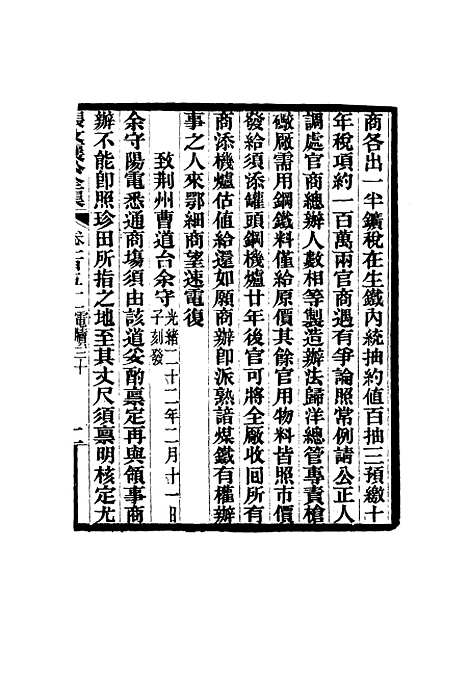 商各出一半鑛稅在生鐵內統抽約値百抽三預繳十
年稅項約一百萬兩官商遇有爭論照常例請公正人
調處官商總辦人數相等製造辦法歸洋總管專責槍
礮廠需用鋼鐵料僅給原價其餘官用物料皆照市價
發給須添罐頭鋼機爐廿年後官可將全廠收囘所有
商添機爐估值給還如願商辦卽派熟諳煤鐵有權辦
事之人來鄂細商望速電復
致荆州曹道台余守
光緒二十二年二月十一日
子刻發
余守陽電悉通商塲須由該道妥酌禀定再與領事商
辦不能卽照珍田所指之地至其丈尺須禀明核定尤